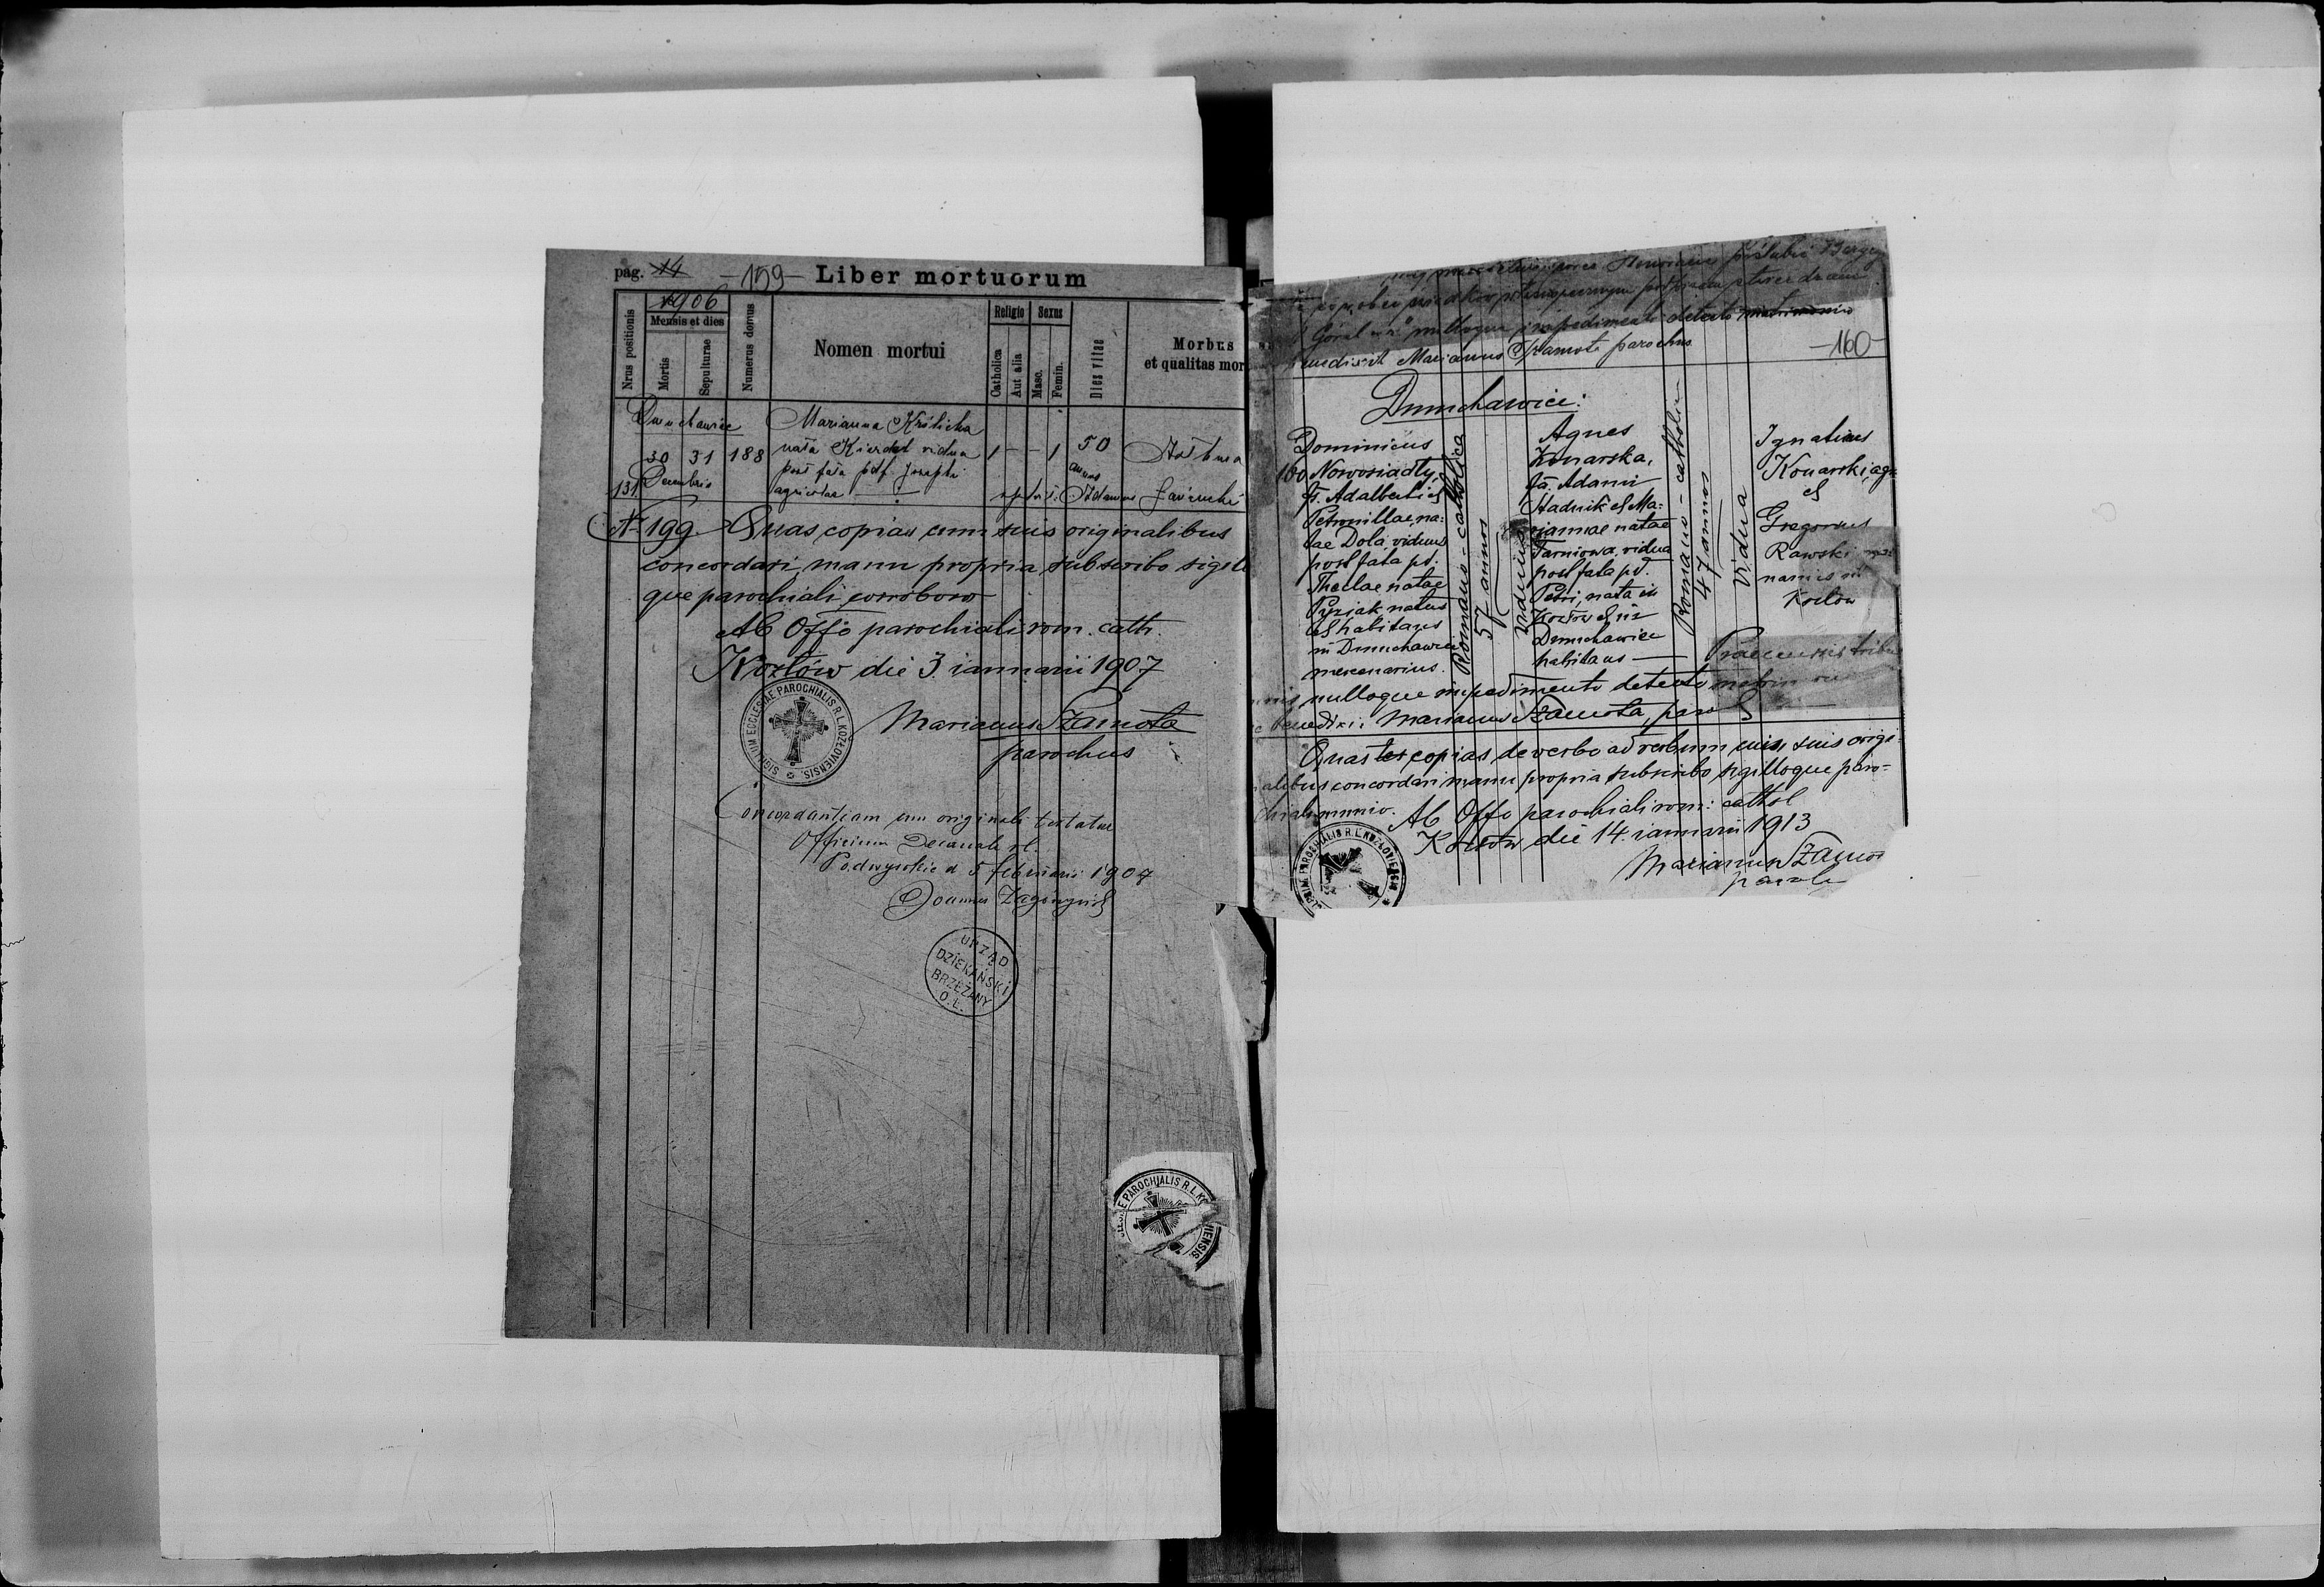 pag. 14 -159- Liber mortuorum
Nrus positionis
1906
Mensis et dies
Mortis
Sepulturae
Numerus domus
Nomen mortui
Religio
Catholica
Aut alia
Sexus
Masc.
Femin.
Dies vitae
Morbus
et qualitas mor
Dmuchawiec
Marianna Królicka
30 31 188 nata Kierdal vidua 1 - - 1 50
annos
post fata pdf. Josephi
131 Decembris
agricolae
Adamus
No 199. Quas copias cum suis originalibus
concordari manu propria subscribo sigill
que parochiali corroboro
Ab Offo parochiali rom. cath.
Kozłów die 3 ianuarii 1907
SIGILLUM ECCLESIAE PAROCHIALIS R. L. KOZŁOVIENSIS.
Marianus Szamota
parochus
Concordantiam cum originali testatur
Officium Decanale r.l.
Podwysokie d 5 februarii 1907
Joannes
URZĄD
DZIEKAŃSKI
BRZEŻANY
O.Ł.
PAROCHJALIS R. L. KO
IENSIS.
nulloque impedimento detecto matrimonio
benedixit Marianus Szamota parochus
-160-
Dmuchawiec:
Dominicus
100 Nowosiadły,
f. Adalberti et
Petronillae na-
tae Dola, viduus
post fata pd.
Theclae natae
Pyziak natus
et habitans
in Dmuchawiec
mercenarius.
Romano-catholica
57 annos
Viduus
Agnes
Konarska,
fa. Adami
Stadnik et Ma-
riannae natae
Tarniowa, vidua
post fata pd.
Petri, nata in
Kozłów et in
Dmuchawiec
habitans
Romano-catholica
47 annos
Vidua
Ignatius
Konarski, agr
et
Gregorius
Rawski
in
Kozłów
Praemissis tribu
nulloque impedimento detecto matrim
benedixi: Marianus Szamota, paro
Quas tes copias de verbo ad verbum suis origi-
nalibus concordari manu propria subscribo sigilloque paro-
chiali munio. Ab Offo parochiali rom: cathol
Kozłów die 14. ianuarii 1913
PAROCHIALIS R. L. KOZŁOVIENSIS
Marianus Szamot
paroch